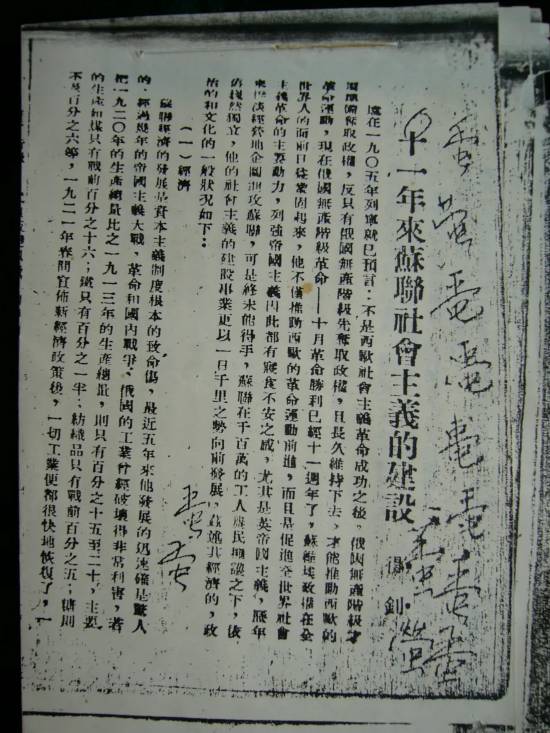 十一年來蘇聯社會主義的建設
遠在一九〇五年列寧就已預言：不是西歐社會主義革命成功之後，俄國無產階級才
奪取政權，反只有俄國無產階級先奪取政權，且長久維持下去，才能推動西歐的
革命運動，現在俄國無產階級革命——十月革命勝利已經十一週年了，蘇維埃政權在全
世界人的面前日益鞏固起來，他不僅推動西歐的革命運動前進，而且是促進全世界社會
主義革命的主要動力，列強帝國主義因此都有寢食不安之感，尤其是英帝國主義，歷年
來慘淡經營地企圖進攻蘇聯，可是終未能得手，蘇聯在千百萬的工人農民擁護之下，依
舊巍然獨立，他的社會主義的建設事業更以一日千里之勢向前發展，茲述其經濟的，政
治的和文化的一般狀況如下：
（一）經濟
蘇聯經濟的發展是資本主義制度根本的致命傷，最近五年來他發展的迅速確是驚人
的，經過幾年的帝國主義大戰，革命和國內戰爭，俄國的工業曾經破壞得非常利害，若
把一九二〇年的生產總量比之一九一三年的生產總量，則只有百分之十五至二十，主要
的生產如煤只有戰前百分之十六；鐵只有百分之一半；紡織品只有戰前百分之五；糖則
不及百分之六等，一九二一年春間宣佈新經濟政策後，一切工業便都很快地恢復了，一